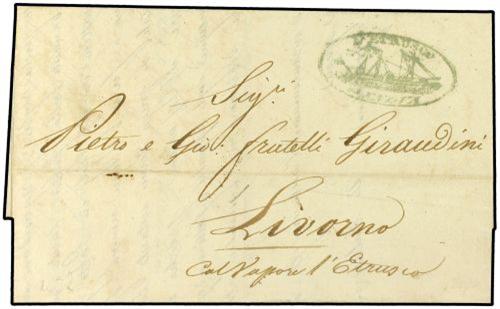 L'ETRUSCO
Sig.ri
Pietro e Gio: fratelli Giraudini
Livorno
Col Vapore l'Etrusco